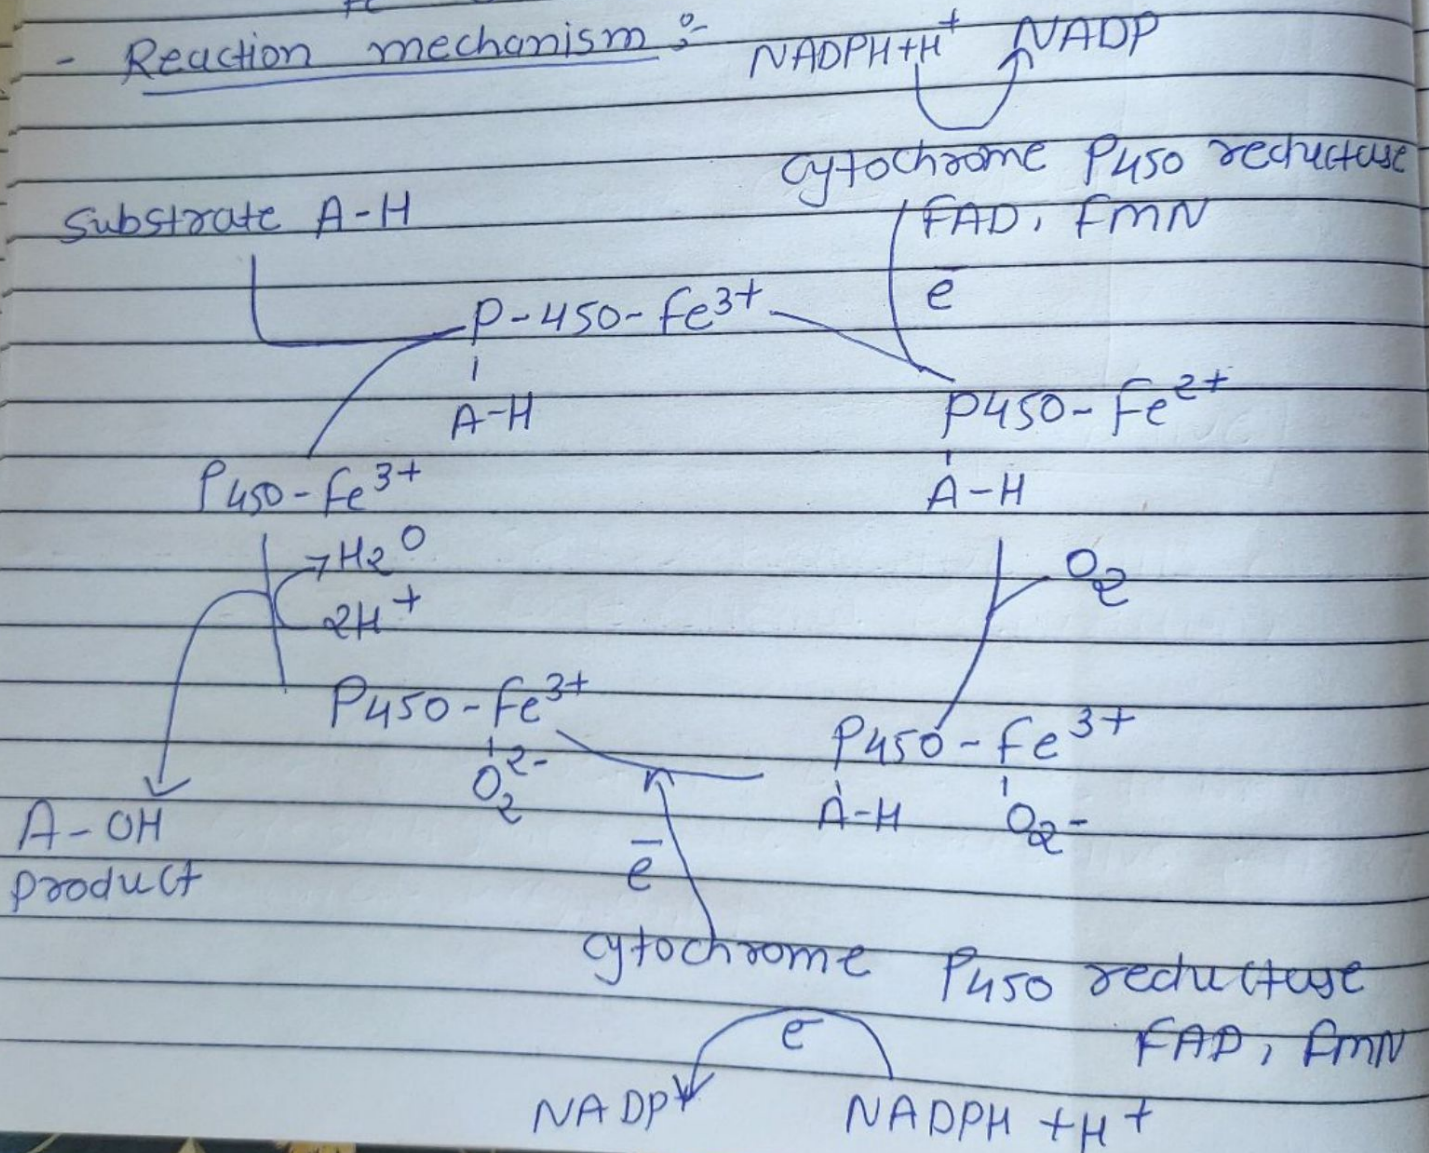 - Reaction mechanism :-
NADPH+H+ NADP
Cytochrome P450 reductase
Substrate A-H
FAD, FMN
e-
P-450-Fe3+
A-H
P450-Fe2+
A-H
P450-Fe3+
H2O
O2
2H+
P450-Fe3+
O2 2-
P450-Fe3+
A-H O2-
A-OH
product
e-
Cytochrome P450 reductase
FAD, FMN
e-
NADP NADPH +H+